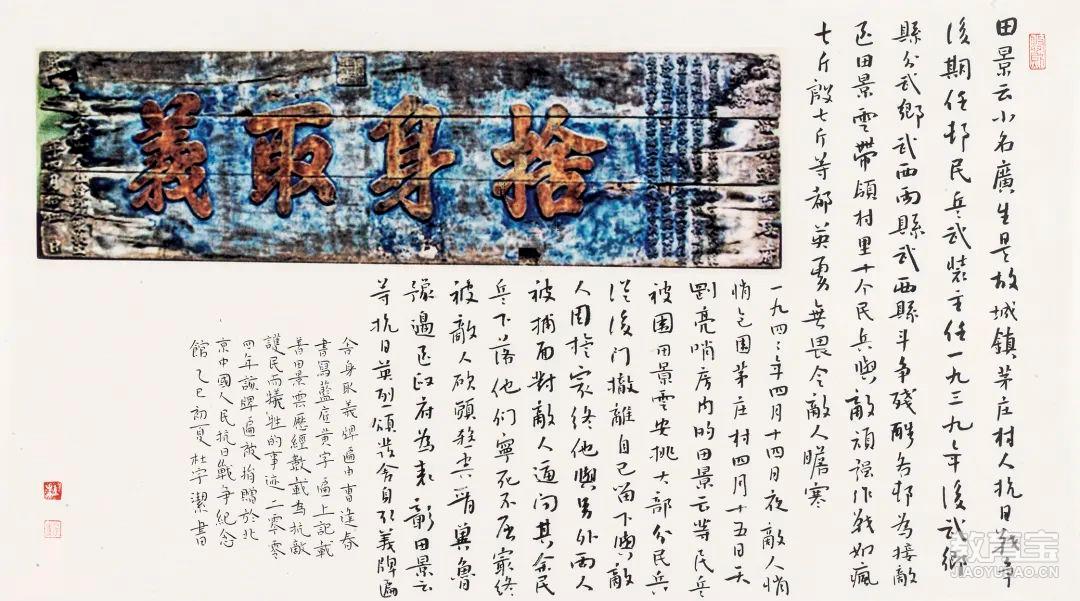 捨身取義
田景云小名廣生是故城鎮茅庄村人抗日戰争
後期任邨民兵武裝主任一九三九年後武鄉
縣分武鄉武西两縣武西縣斗争殘酷各邨為接敵
區田景雲帶領村里十个民兵與敵頑强作戰如瘋
七斤殷七斤等都英勇無畏令敵人膽寒
一九四二年四月十四日夜敵人悄
悄包围茅庄村四月十五日天
剛亮哨房内的田景云等民兵
被围田景雲安挑大部分民兵
從後门撤離自己留下與敵
人周旋最终他與另外两人
被捕面對敵人逼问其余民
兵下落他们寧死不屈最终
被敵人砍頭殺害晋冀魯
豫邊區政府為表彰田景云
等抗日英烈頒發舍身取義牌匾
舍身取義牌匾由曹逢春
書寫藍底黄字匾上記載
着田景雲歷經數載為抗敵
護民而犧牲的事迹二零零
四年該牌匾被捐贈於北
京中國人民抗日戰争纪念
館乙巳初夏杜宇潔書
教育宝
JIAOYUBAO.CN